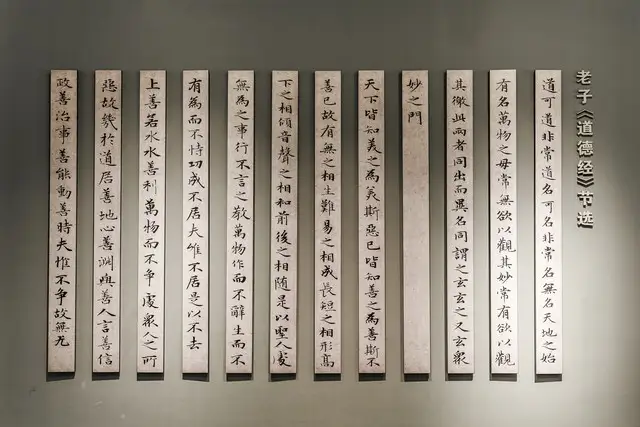 老子《道德经》节选
道可道非常道名可名非常名無名天地之始
有名萬物之母常無欲以觀其妙常有欲以觀
其徼此兩者同出而異名同謂之玄玄之又玄眾
妙之門
天下皆知美之為美斯惡已皆知善之為善斯不
善已故有無之相生難易之相成長短之相形高
下之相傾音聲之相和前後之相随是以聖人處
無為之事行不言之教萬物作而不辭生而不
有為而不恃功成不居夫惟不居是以不去
上善若水水善利萬物而不争處眾人之所
惡故幾於道居善地心善淵與善人言善信
政善治事善能動善時夫惟不争故無尤